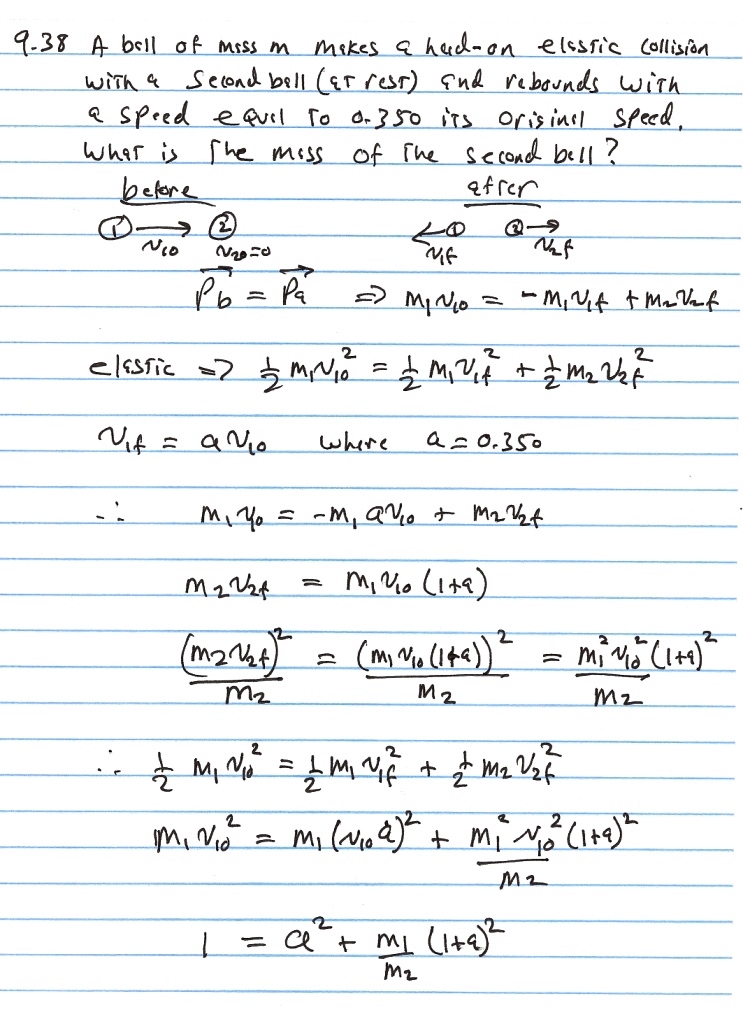 9-38 A ball of mass m makes a head-on elastic collision
with a second ball (at rest) and rebounds with
a speed equal to 0.350 its original speed.
What is the mass of the second ball?
before after
① → ② ← ① ② →
v₁₀ v₂₀=0 v₁f v₂f
P⃗b = P⃗a ⇒ m₁v₁₀ = -m₁v₁f + m₂v₂f
elastic ⇒ 1/2 m₁v₁₀² = 1/2 m₁v₁f² + 1/2 m₂v₂f²
v₁f = a v₁₀ where a = 0.350
∴ m₁v₁₀ = -m₁ a v₁₀ + m₂v₂f
m₂v₂f = m₁v₁₀ (1+a)
(m₂v₂f)²/m₂ = (m₁v₁₀(1+a))²/m₂ = m₁²v₁₀²(1+a)²/m₂
∴ 1/2 m₁v₁₀² = 1/2 m₁v₁f² + 1/2 m₂v₂f²
m₁v₁₀² = m₁(v₁₀a)² + m₁²v₁₀²(1+a)²/m₂
1 = a² + m₁/m₂ (1+a)²